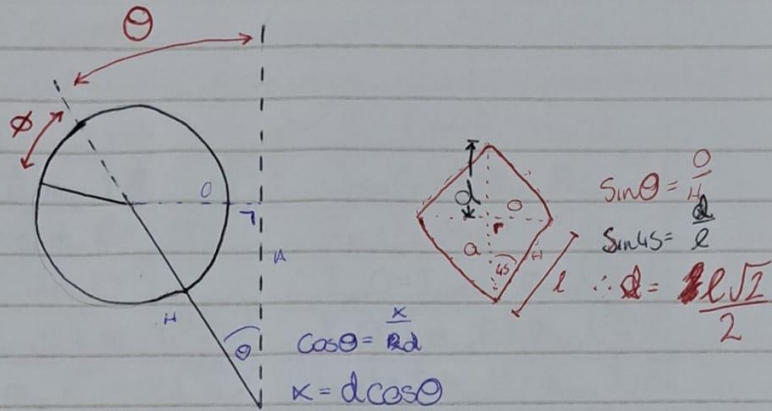 θ
φ
O
A
H
θ
cosθ = x/d
x = dcosθ
d
O
r
a
45
H
l
Sinθ = O/H
Sin45 = d/l
∴ d = l√2/2